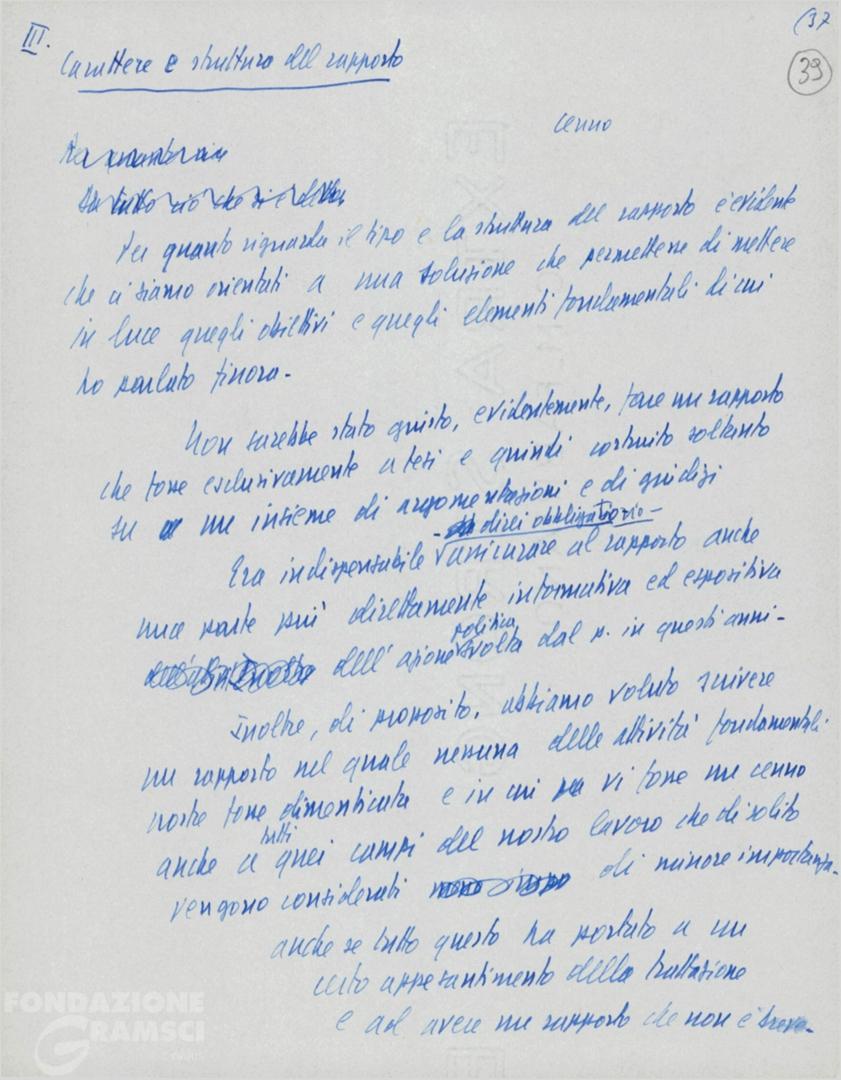 III.
(37
39
Carattere e struttura del rapporto
cenno
Da tutto ciò che si è detto
Per quanto riguarda il tipo e la struttura del rapporto è evidente
che ci siamo orientati a una soluzione che permettesse di mettere
in luce quegli obiettivi e quegli elementi fondamentali di cui
ho parlato finora -
Non sarebbe stato giusto, evidentemente, fare un rapporto
che fosse esclusivamente a tesi e quindi costruito soltanto
su un insieme di argomentazioni e di giudizi
- direi obbligatorio -
Era indispensabile assicurare al rapporto anche
una parte più direttamente informativa ed espositiva
politica
dell'azione svolta dal p. in questi anni -
Inoltre, di proposito, abbiamo voluto scrivere
un rapporto nel quale nessuna delle attività fondamentali
nostre fosse dimenticata e in cui vi fosse un cenno
tutti
anche a quei campi del nostro lavoro che di solito
vengono considerati di minore importanza -
anche se tutto questo ha portato a un
certo appesantimento della trattazione
e ad avere un rapporto che non è breve -
FONDAZIONE
GRAMSCI